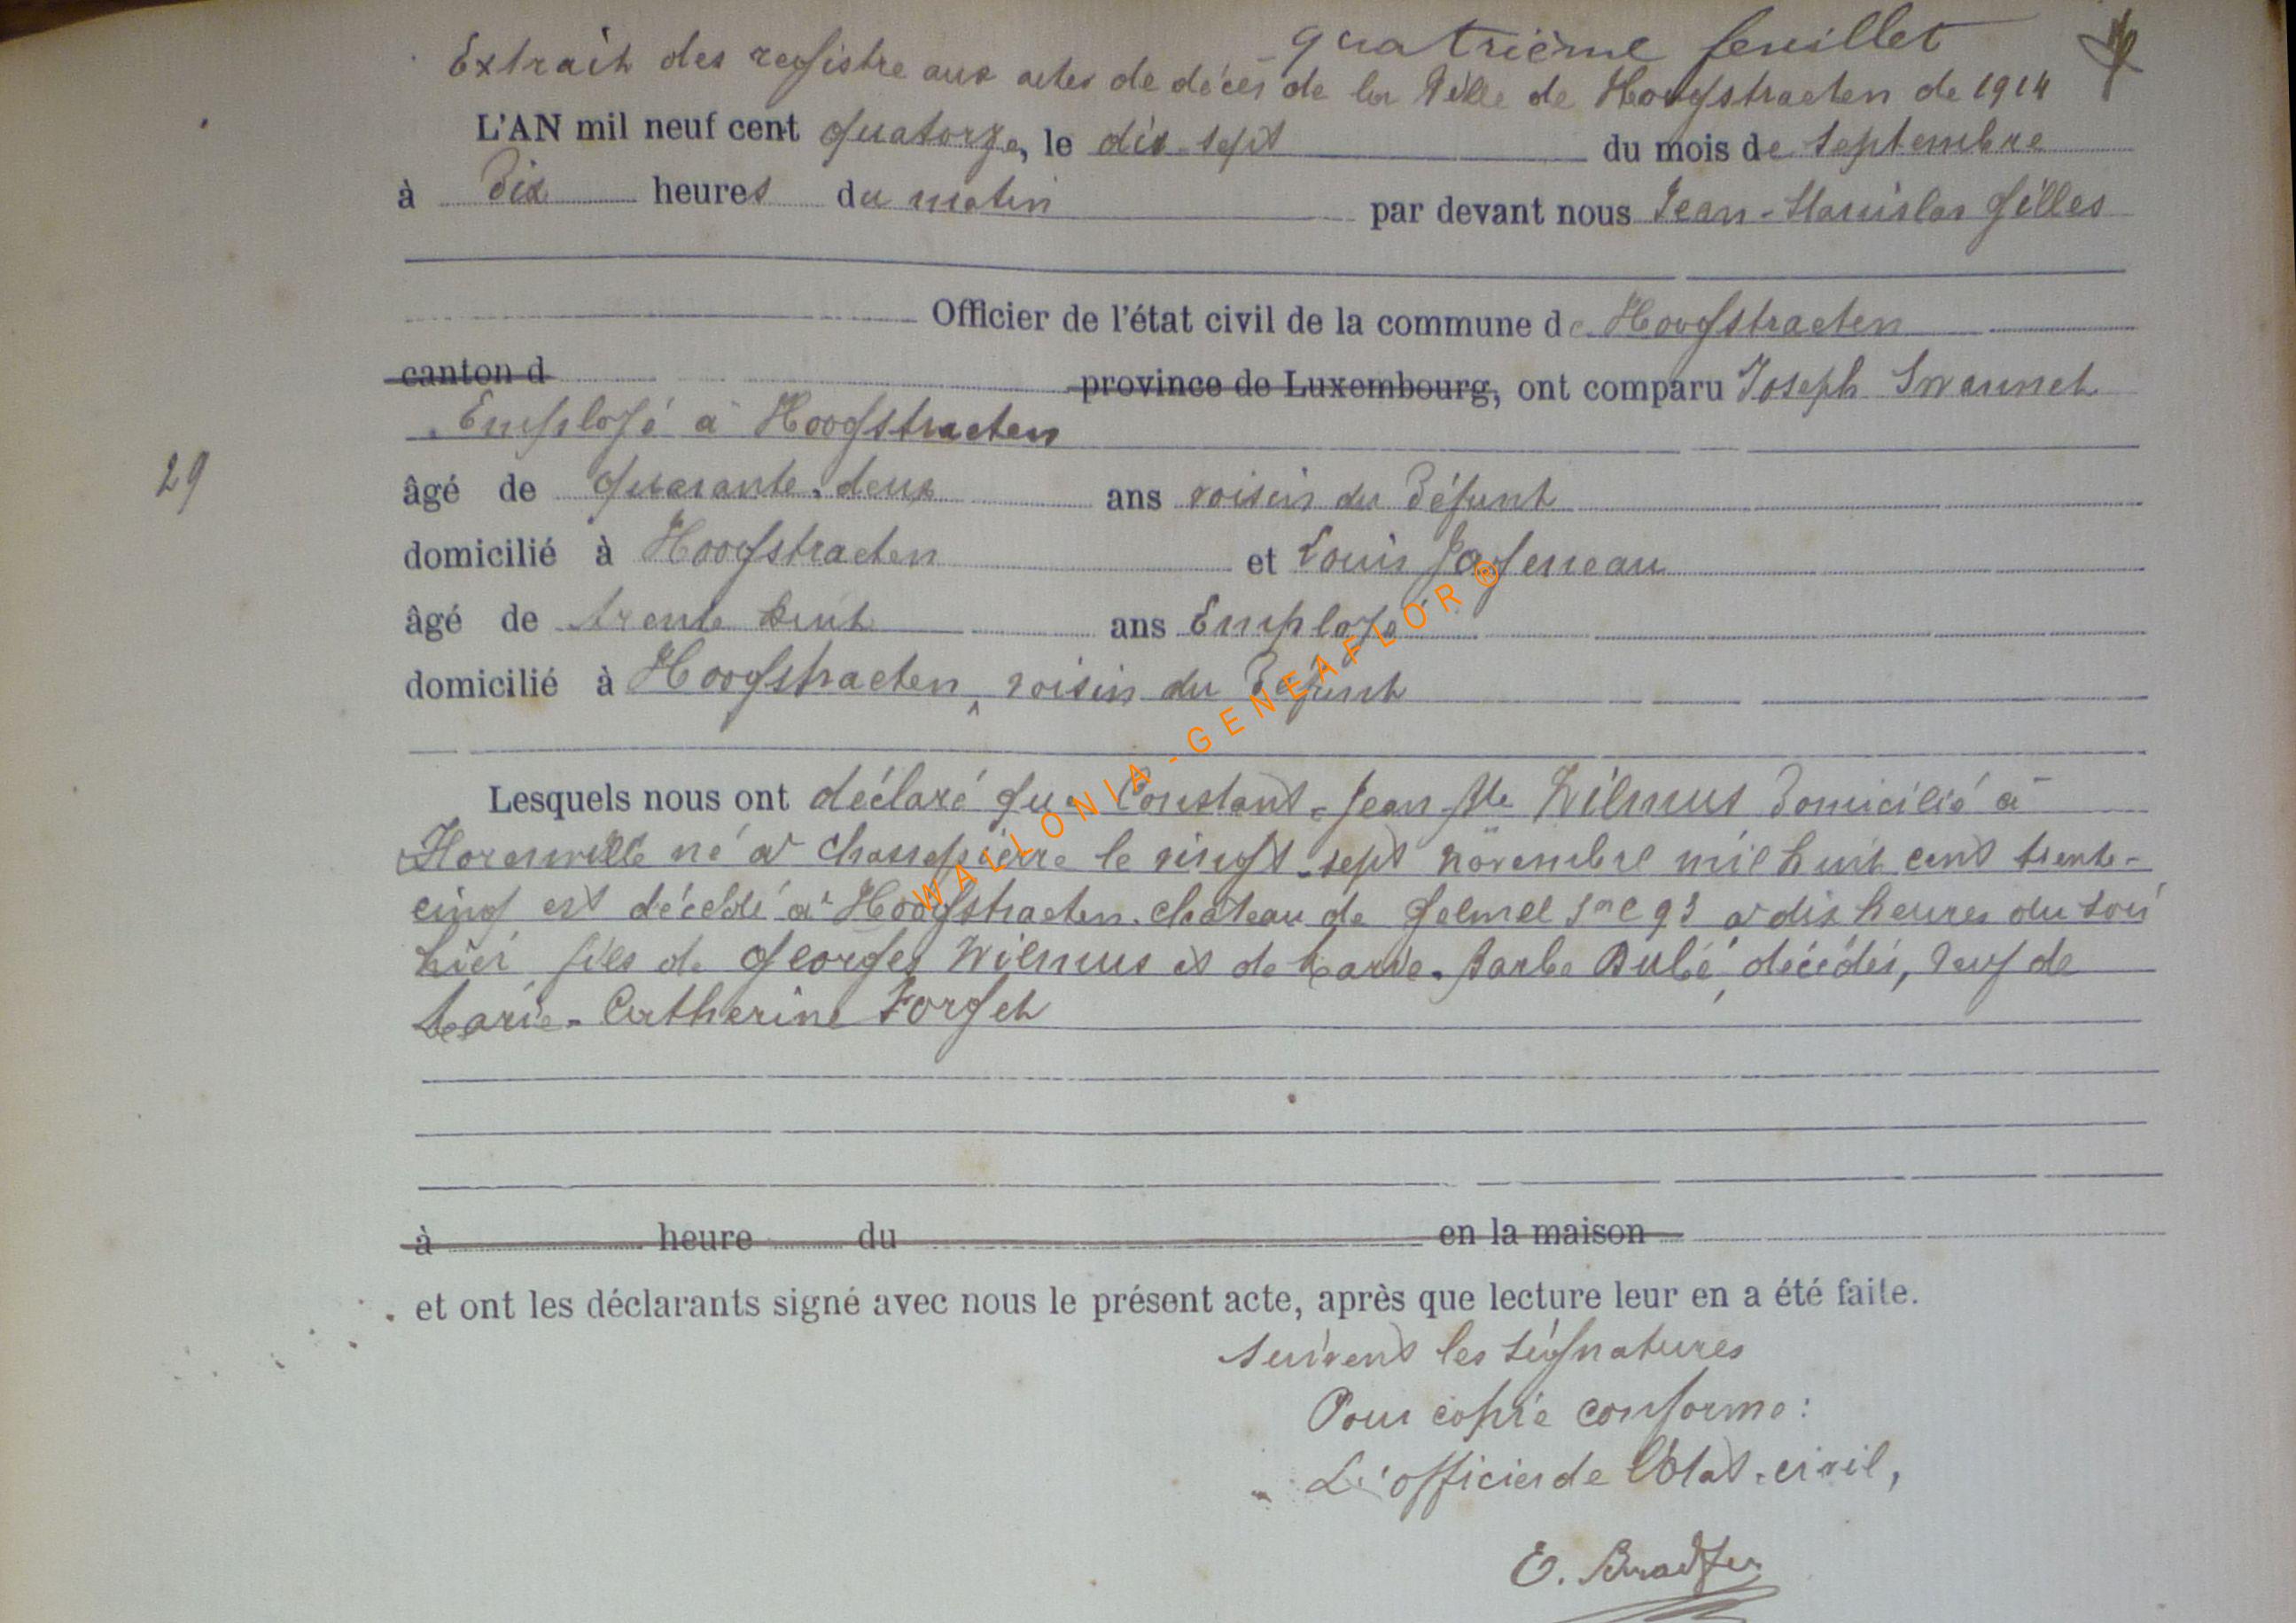 quatrième feuillet
Extrait des registre aux actes de décès de la Ville de Hoogstraeten de 1914
L'AN mil neuf cent quatorze, le dix-sept du mois de septembre
à Dix heures du matin par devant nous Jean-Stanislas Gilles
Officier de l'état civil de la commune de Hoogstraeten
canton d province de Luxembourg, ont comparu Joseph Swannet
Employé à Hoogstraeten
29
âgé de quarante-deux ans voisin du Défunt
domicilié à Hoogstraeten et Louis Jageneau
âgé de trente huit ans Employé
domicilié à Hoogstraeten, voisin du Défunt
Lesquels nous ont déclaré que Constant-Jean Bte Wilmus Domicilié à
né à Chassepierre le vingt-sept novembre mil huit cent trente-
cinq est décédé à Hoogstraeten. château de Gelmel 93 à dix heures du soir
hier fils de Georges Wilmus et de Marie-Barbe Dubé, décédés, veuf de
Marie-Catherine Forget
à heure du en la maison
et ont les déclarants signé avec nous le présent acte, après que lecture leur en a été faite.
suivent les signatures
Pour copie conforme:
L'officier de l'Etat-civil,
E. Bradfer
WALLONIA-GENEAFLOR®